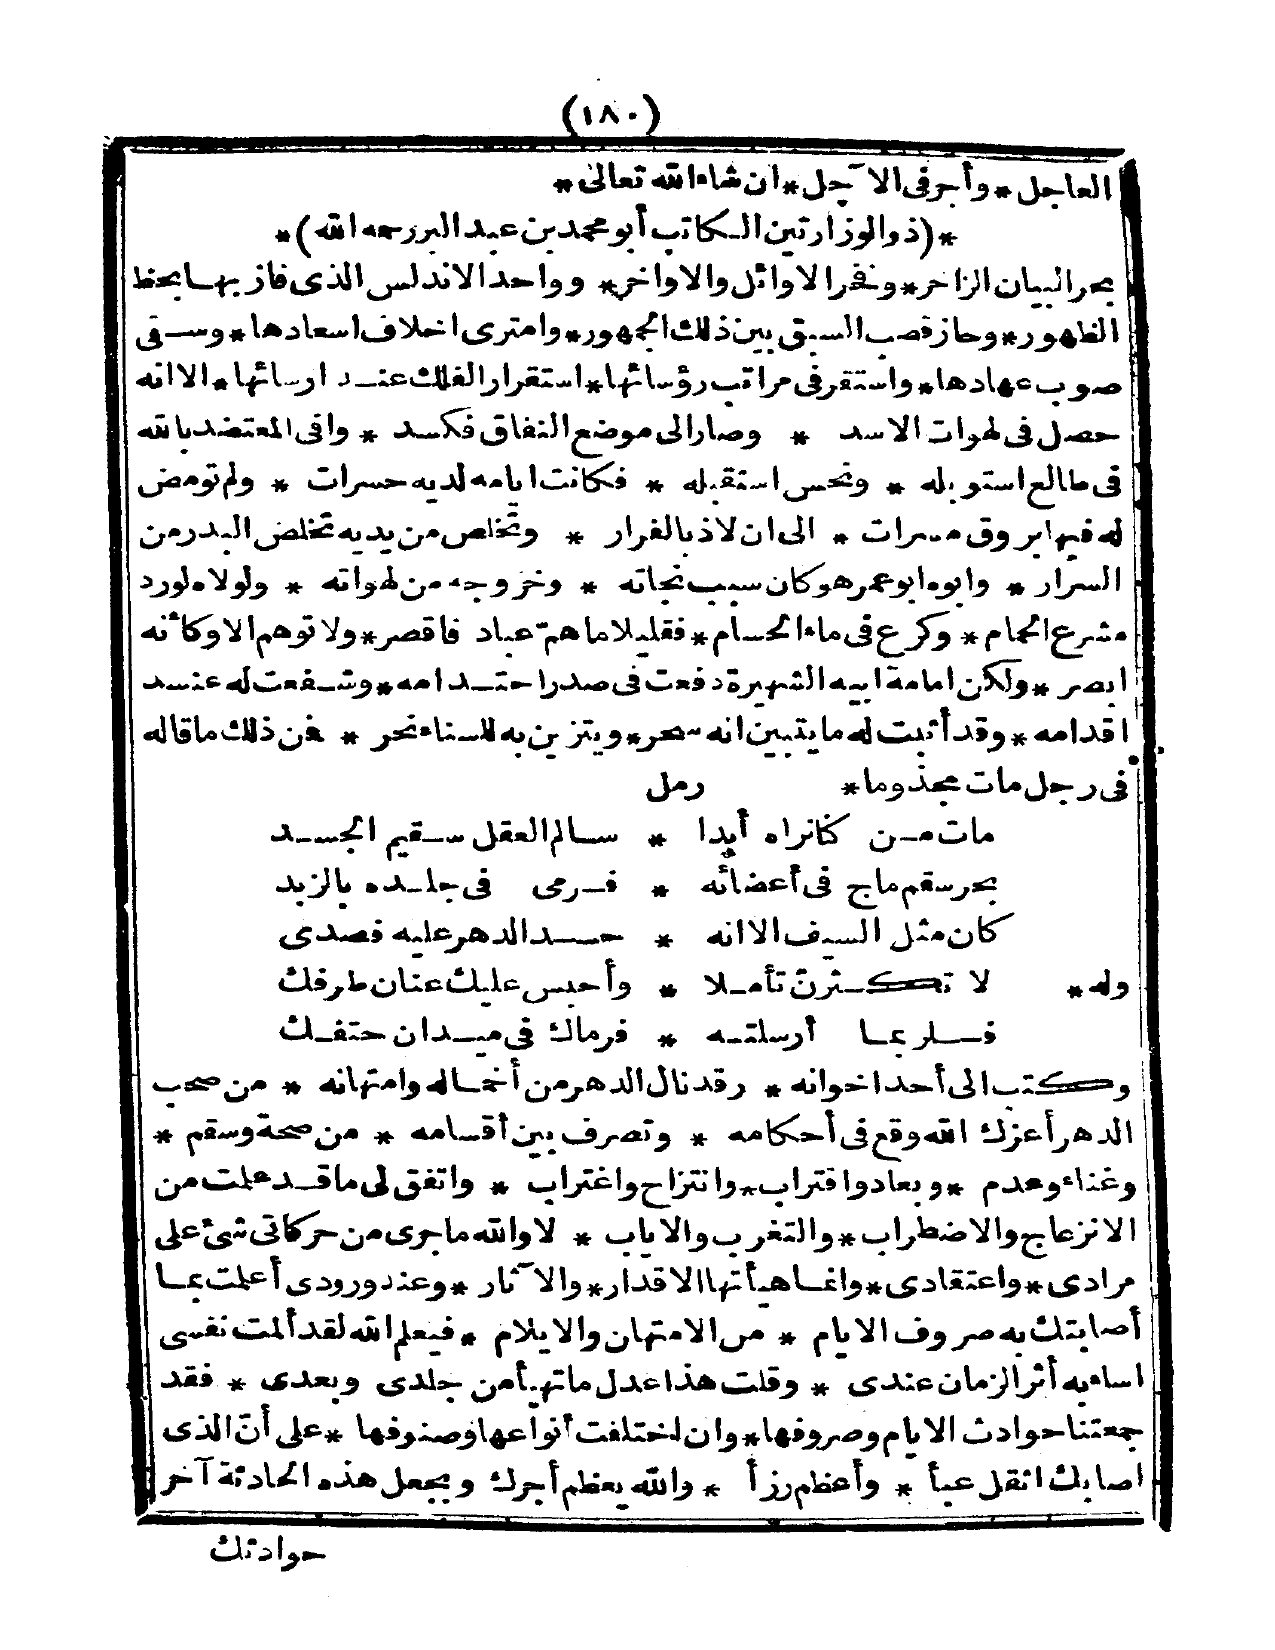 (١٨٠)
العاجل * وأجر فى الآجل * ان شاء الله تعالى *
* (ذو الوزارتين الكاتب أبو محمد بن عبد البر رحمه الله) *
بحر البيان الزاخر * وفخر الاوائل والاواخر * وواحد الاندلس الذى فاز بها بحظ
الظهور * وحاز قصب السبق بين ذلك الجمهور * وامترى اخلاف اسعادها * وسقى
صوب عهادها * واستقر فى مراتب رؤسائها * استقرار الفلك عند ارسائها * الا انه
حصل فى لهوات الاسد * وصار الى موضع النفاق فكسد * وافى المعتضد بالله
فى طالع استوبله * ونحس استقبله * فكانت ايامه لديه حسرات * ولم تومض
له فيها بروق مسرات * الى ان لاذ بالفرار * وتخلص من يديه تخلص البدر من
السرار * وابوه ابو عمر هو كان سبب نجاته * وخروجه من لهواته * ولولاه لورد
مشرع الحمام * وكرع فى ماء الحسام * فقليلا ما همّ عباد فاقصر * ولا توهم الا وكأنه
ابصر * ولكن امامة ابيه الشهيرة دفعت فى صدر احتدامه * وشفعت له عند
اقدامه * وقد أثبت له ما يتبين انه سحر * ويتزين به للسناء نحر * فمن ذلك ما قاله
فى رجل مات مجذوما * رمل
مات من كنا نراه أبدا * سالم العقل سقيم الجسد
بحر سقم ماج فى أعضائه * فرمى فى جلده بالزبد
كان مثل السيف الا انه * حسد الدهر عليه فصدى
وله * لا تكثرنّ تأملا * وأحبس عليك عنان طرفك
فلربما أرسلته * فرماك فى ميدان حتفك
وكتب الى أحد اخوانه * وقد نال الدهر من أخماله وامتهانه * من صحب
الدهر أعزك الله وقع فى أحكامه * وتصرف بين أقسامه * من صحة وسقم *
وغناء وعدم * وبعاد واقتراب * وانتزاح واغتراب * واتفق لى ما قد علمت من
الانزعاج والاضطراب * والتغرب والاياب * لا والله ما جرى من حركاتى شئ على
مرادى * واعتقادى * وانما هيأتها الاقدار * والآثار * وعند ورودى أعلمت بما
أصابتك به صروف الايام * من الامتهان والايلام * فيعلم الله لقد ألمت نفسى
اساءبه أثر الزمان عندى * وقلت هذا عدل ما تهيأ من جلدى وبعدى * فقد
جمعتنا حوادث الايام وصروفها * وان اختلفت أنواعها وصنوفها * على أنّ الذى
اصابك اثقل عبأ * وأعظم رزأ * والله يعظم أجرك ويجعل هذه الحادثة آخر
حوادثك